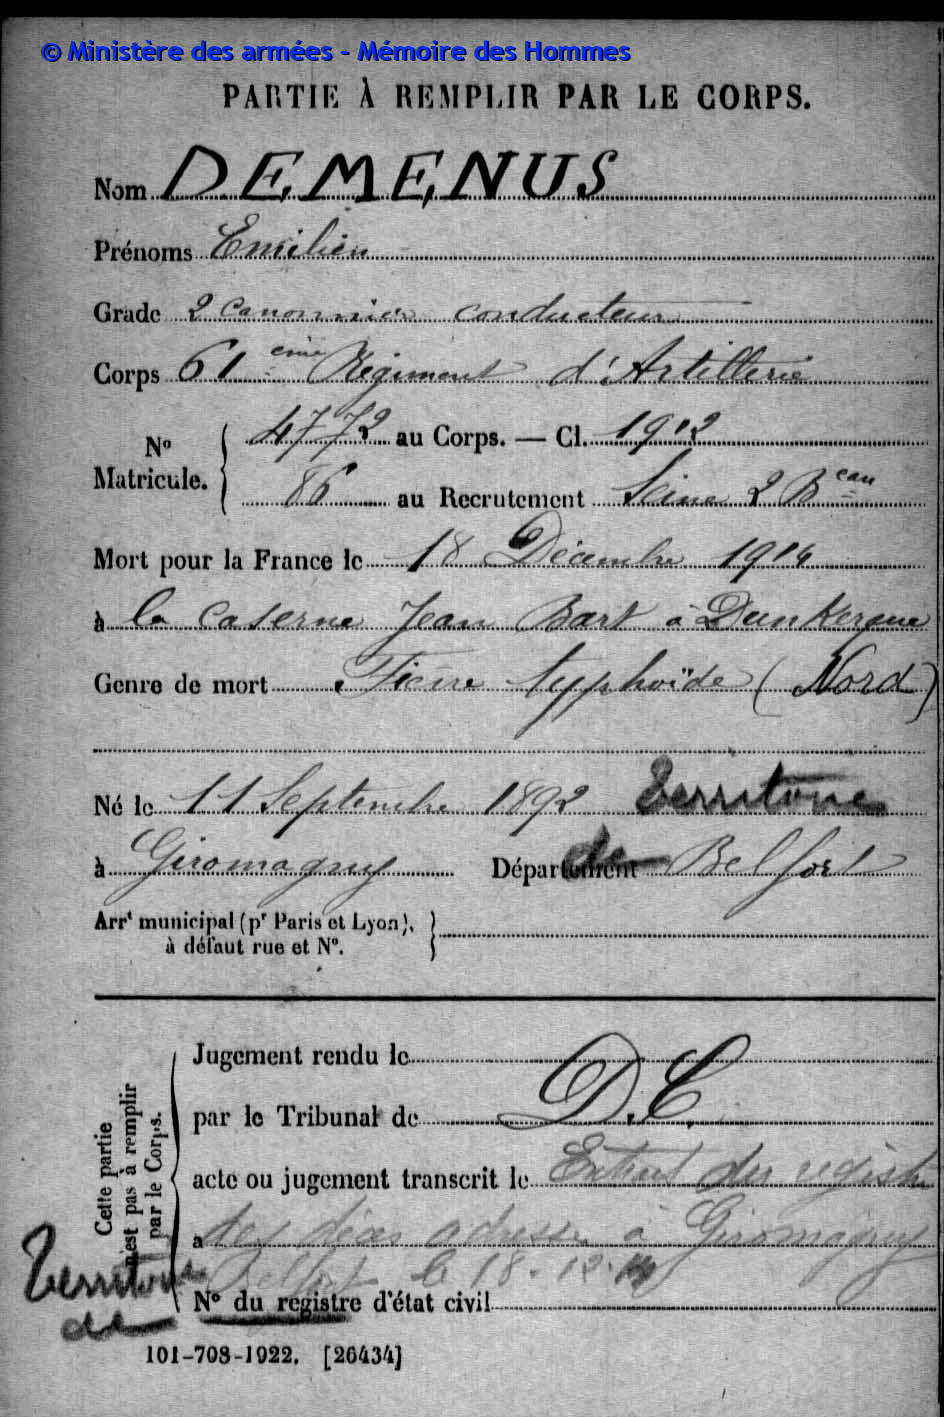 © Ministère des armées - Mémoire des Hommes
PARTIE À REMPLIR PAR LE CORPS.
Nom DEMENUS
Prénoms Emilien
Grade 2 canonnier conducteur
Corps 61 eme Régiment d'Artillerie
Nº Matricule. { 4772 au Corps. — Cl. 1912
86 au Recrutement Seine 2 Beau
Mort pour la France le 18 Décembre 1914
à la caserne Jean Bart à Dunkerque
Genre de mort Fièvre typhoïde (Nord)
Né le 11 Septembre 1892 Territoire
à Giromagny Département de Belfort
Arrt municipal (pr Paris et Lyon),
à défaut rue et Nº. }
Cette partie
n'est pas à remplir
par le Corps.
Jugement rendu le
par le Tribunal de D.C.
acte ou jugement transcrit le Extrait du registre
à des décès adressé à Giromagny
Territoire de Belfort le 18.12.14
Nº du registre d'état civil
101-708-1922. [26434]